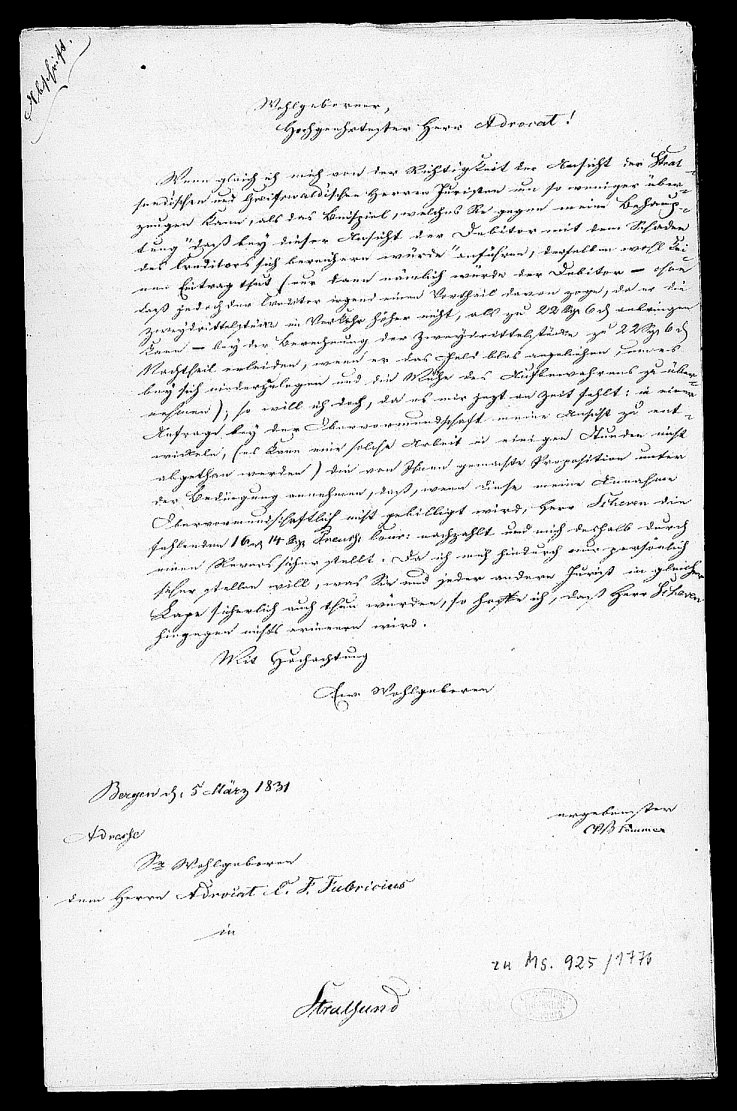 Abschrift.
Wohlgeborner,
Hochgeehrtester Herr Advocat!
Wenn gleich ich mich von der Richtigkeit der Ansicht der Stral-
sundischen und Greifswaldischen Herren Juristen um so weniger über-
zeugen kann, als das Beispiel, welches Sie gegen meine Behaup-
tung "daß bey dieser Ansicht der Debitor mit dem Schaden
des Creditors sich bereichern würde" anführen, derselben wohl kei-
nen Eintrag thut (nur dann nämlich würde der Debitor – ohne
daß jedoch der Creditor irgend einen Vortheil davon zöge, da er die
Zweydrittelstücke im Verkehr höher nicht, als zu 22 Sgr 6 d anbringen
kann – bey der Berechnung der Zweydrittelstücke zu 22 Sgr 6 d
Nachtheil erleiden, wenn er das Geld blos angeliehen, um es
bey sich niederzulegen und die Mühe des Aufbewahrens zu über-
nehmen), so will ich doch, da es mir jetzt an Zeit fehlt: in einer
Anfrage bey der Obervormundschaft meine Ansicht zu ent-
wickeln, (es kann eine solche Arbeit in einigen Stunden nicht
abgethan werden) die von Ihnen gemachte Proposition unter
der Bedingung annehmen, daß, wenn diese meine Annahme
Obervormundschaftlich nicht gebilligt wird, Herr Scheven die
fehlenden 16 14 Sgr Preuß: Cour: nachzahlt und mich deshalb durch
einen Revers sicher stellt. Da ich mich hindurch nur persönlich
sicher stellen will, was Sie und jeder andere Jurist in gleicher
Lage sicherlich auch thun würden, so hoffe ich, daß Herr Scheven
hingegen nichts erinnern wird.
Mit Hochachtung
Ew. Wohlgeboren
Bergen d. 5 März 1831
ergebenster
Adresse
Sr Wohlgeboren
dem Herrn Advocat C. F. Fabricius
in
zu Ms. 925/1776
Stralsund